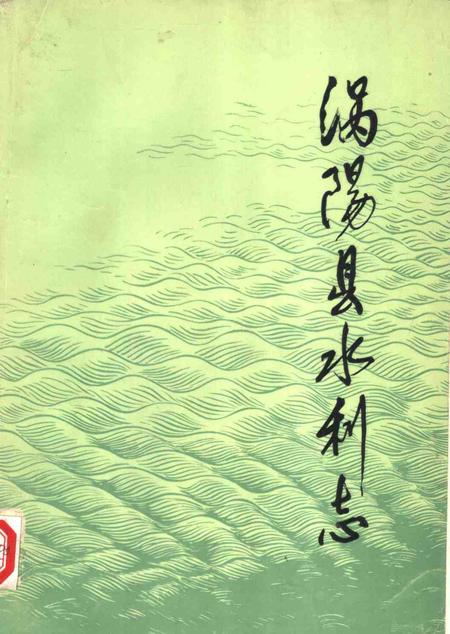 涡陽县水利志